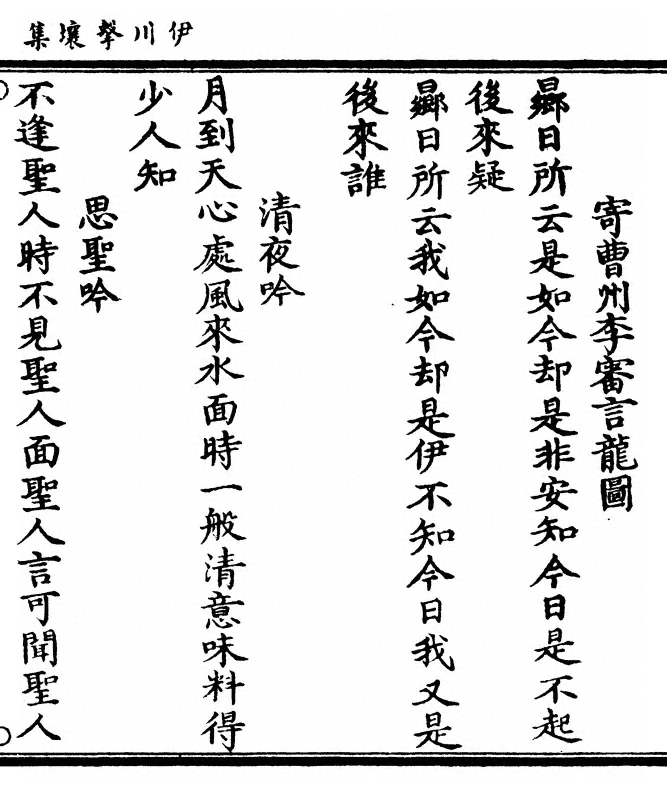 伊川擊壤集
寄曹州李審言龍圖
曏日所云是如今却是非安知今日是不起
後來疑
曏日所云我如今却是伊不知今日我又是
後來誰
清夜吟
月到天心處風來水面時一般清意味料得
少人知
思聖吟
不逢聖人時不見聖人面聖人言可聞聖人